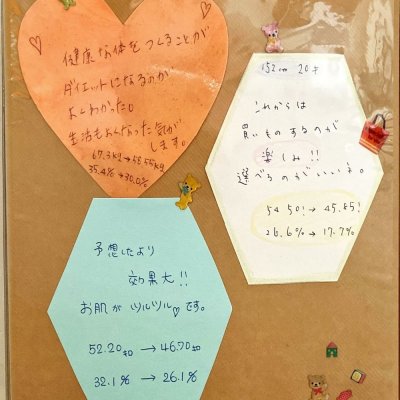 健康な体をつくることが
ダイエットになるのが
よくわかった。
生活もかわった気が
します。
67.3kg→58.55kg
35.4%→30.0%
152cm 20才
これからは
買いものするのが
楽しみ!!
選べるのがいいネ。
54.50!→45.85!
26.6%→17.7%
予想したより
効果大!!
お肌が ツルツル♡です。
52.20キロ→46.70キロ
32.1%→26.1%